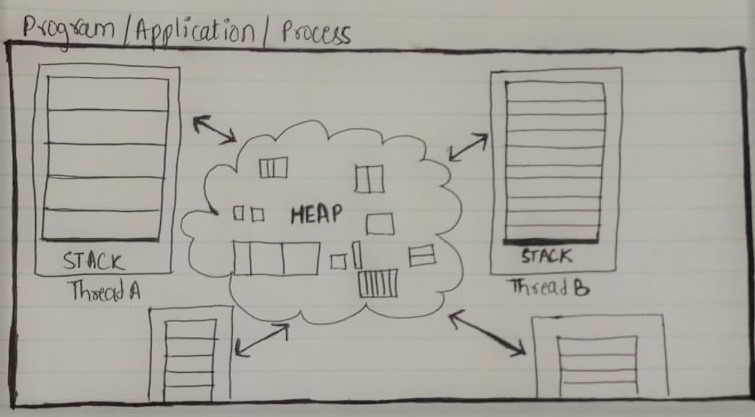 Program/Application/Process
HEAP
STACK
Thread A
STACK
Thread B